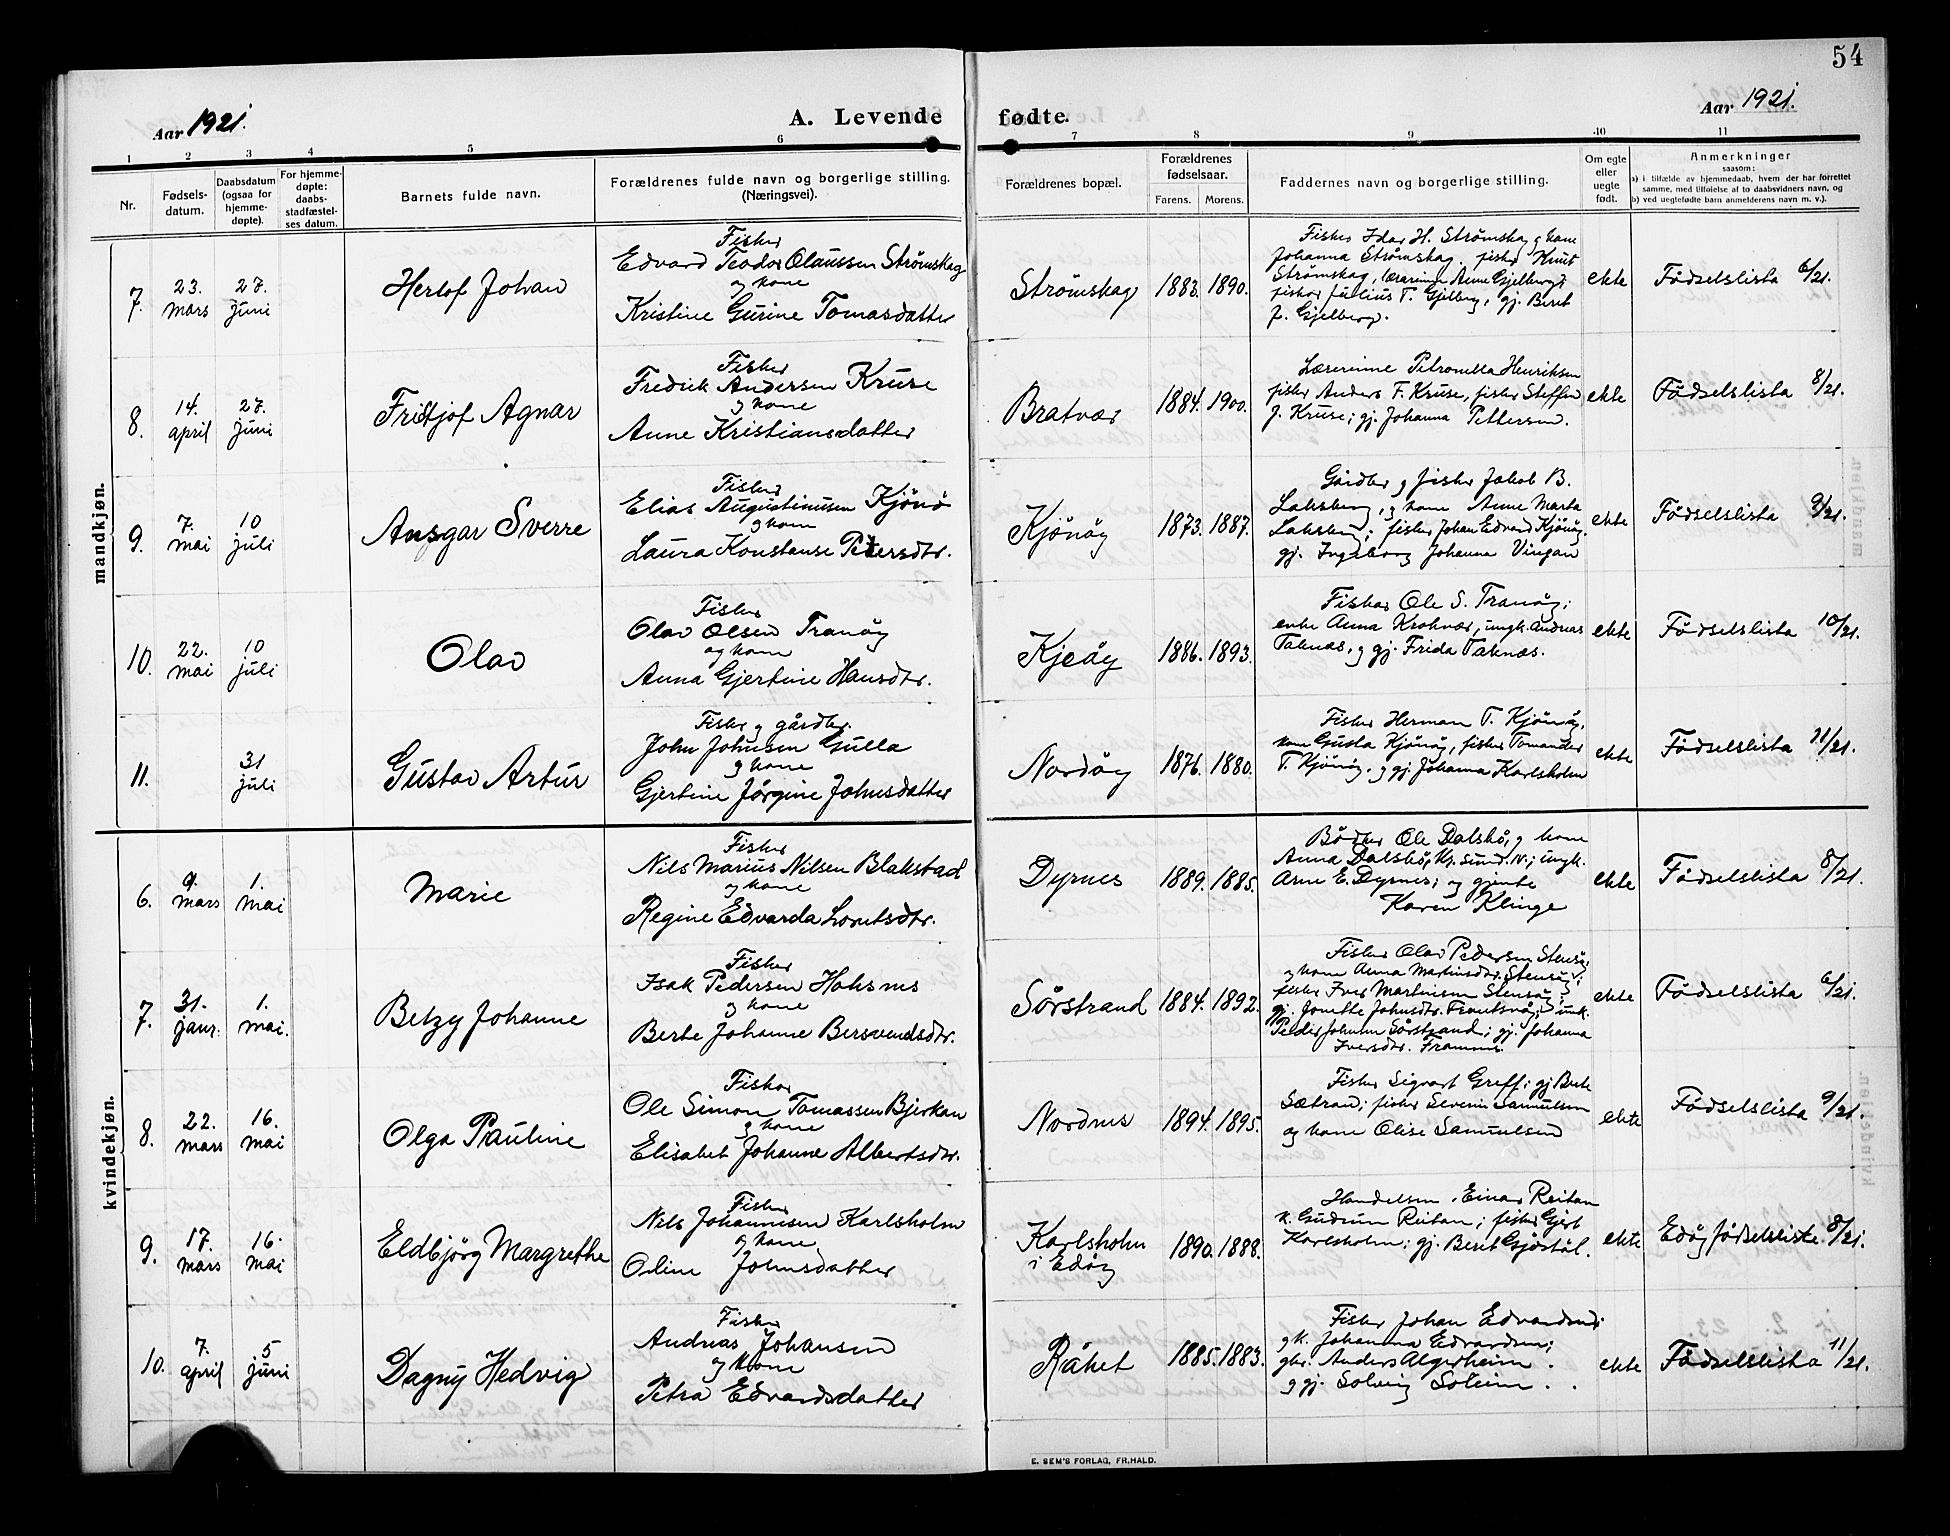 54
Aar 1921.
A. Levende fødte.
Aar 1921.
1 2 3 4 5 6 7 8 9 10 11
Nr.
Fødsels-
datum.
Daabsdatum
(ogsaa for
hjemme-
døpte).
For hjemme-
døpte:
daabs-
stadfæstel-
ses datum.
Barnets fulde navn.
Forældrenes fulde navn og borgerlige stilling.
(Næringsvei).
Forældrenes bopæl.
Forældrenes
fødselsaar.
Farens. Morens.
Faddernes navn og borgerlige stilling.
Om egte
eller
uegte
født.
Anmerkninger
saasom:
a) i tilfælde av hjemmedaab, hvem der har forrettet
samme, med tilføielse af to daabsvidners navn, og
b) ved uegtefødte barn anmelderens navn m. v.).
mandkjøn.
7.
23.
mars
27.
juni
Herlof Johan
Fisker
Edvard Teodor Olaussen Strømskag
og kone
Kristine Gurine Tomasdatter
Strømskag
1883. 1890.
Fisker Idar H. Strømskag og kone
Johanna Strømskag. fisker Knut
Strømskag, lærerinne Anne Gjelberg,
fisker Julius T. Gjelberg, gj. Beret
J. Gjelberg.
ekte
Fødselslista 6/21.
8.
14.
april
27.
juni
Fritjof Agnar
Fisker
Fredrik Andersen Kruse
og kone
Anne Kristiansdatter
Bratvær
1884. 1900.
Lærerinne Petronella Henriksen
fisker Anders F. Kruse, fisker Steffen
J. Kruse; gj. Johanna Pettersen.
ekte
Fødselslista 8/21.
9.
7.
mai
10
juli
Ansgar Sverre
Fisker
Elias Augustinusen Kjönö
og kone
Laura Konstanse Petersdtr.
Kjönöy
1873. 1887.
Gårdbr. og fisker Jakob B.
Laksberg, og kone Anne Marta
Laksberg; fisker Johan Edvard Kjönöy.
gj. Ingeborg Johanna Vingan
ekte
Fødselslista 9/21.
10.
22.
mai
10
juli
Olav
Fisker
Olav Olsen Tranöy
og kone
Anna Gjertine Hansdtr.
Kjeöy
1886. 1893.
Fisker Ole S. Tranöy;
enke Anna Krokvær, ungk. Andreas
Taknæs, og gj. Frida Taknæs.
ekte
Fødselslista 10/21.
11.
31
juli
Gustav Artur
Fisker og gårdbr.
John Johnsen Gulla
og kone
Gjertine Jørgine Johnsdatter
Nordöy
1876. 1880.
Fisker Herman T. Kjönöy,
kone Gusta Kjönöy, fisker Tomander
T. Kjönöy. og gj. Johanna Karlsholm
ekte
Fødselslista 11/21.
kvindekjøn.
6.
9.
mars
1.
mai
Marie
Fisker
Nils Marius Nilsen Blakstad
og kone
Regine Edvarda Lorntsdtr.
Dyrnes
1889. 1885.
Bødker Ole Dalskö, og kone
Anna Dalskö, Kr. sund. N.; ungk.
Arne E. Dyrnes; og gjente
Karen Klinge
ekte
Fødselslista 8/21.
7.
31.
janr.
1.
mai.
Betzy Johanne
Fisker
Isak Pedersen Hoksnes
og kone
Berte Johanne Bersvendsdtr.
Sørstrand
1884. 1892.
Fisker Olav Pedersen Stensöy
og kone Anna Martinsdtr. Stensöy;
fisker Iver Martinsen Stensöy;
gj. Jonette Johnsdtr. ; unk.
Peder Johnsen Sørstrand; gj. Johanna
Iversdtr. Framnes.
ekte
Fødselslista 6/21.
8.
22.
mars
16.
mai
Olga Pauline
Fisker
Ole Simon Tomassen Bjerkan
og kone
Elisabet Johanne Albertsdtr.
Nordnes
1894. 1895.
Fisker Sigvart Greff; gj Berte
Sætran; fisker Severin Samulsen
og kone Olise Samulsen
ekte
Fødselslista 9/21.
9.
17.
mars
16.
mai
Eldbjörg Margrethe
Fisker
Nils Johannesen Karlsholm
og kone
Oline Johnsdatter
Karlsholm
i Edöy
1890. 1888.
Handelsm. Einar Reitan
k. Gudrun Reitan; fisker Gjert
Karlsholm; gj. Beret Gjöstöl.
ekte
Edöy fødselsliste 8/21.
10.
7.
april
5
juni
Dagny Hedvig
Fisker
Andreas Johansen
og kone
Petra Edvardsdatter
Råket
1885. 1883.
Fisker Johan Edvardsen;
og k. Johanna Edvardsen;
gbr. Anders Algerheim.
og gj. Solveig Soleim.
ekte
Fødselslista 11/21.
E. SEM'S FORLAG, FR.HALD.